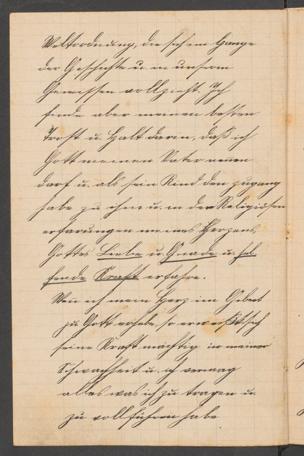 Weltordnung, die sich im Gange
der Geschichte u. in unserm
Gewissen vollzieht. Ich
finde aber meinen besten
Trost u. Halt darin, daß ich
Gott meinen Vater nennen
darf u. als sein Kind den Zugang
habe zu ihm u. in den Religiösen
erfarungen meines Herzens
Gottes Liebe u. Gnade u. hel
fende Kraft erfahre.
Wenn ich mein Herz im Gebet
zu Gott erhebe, so erweist sich
seine Kraft mächtig in meiner
Schwachheit u. ich vermag
alles was ich zu tragen u.
zu vollführen habe